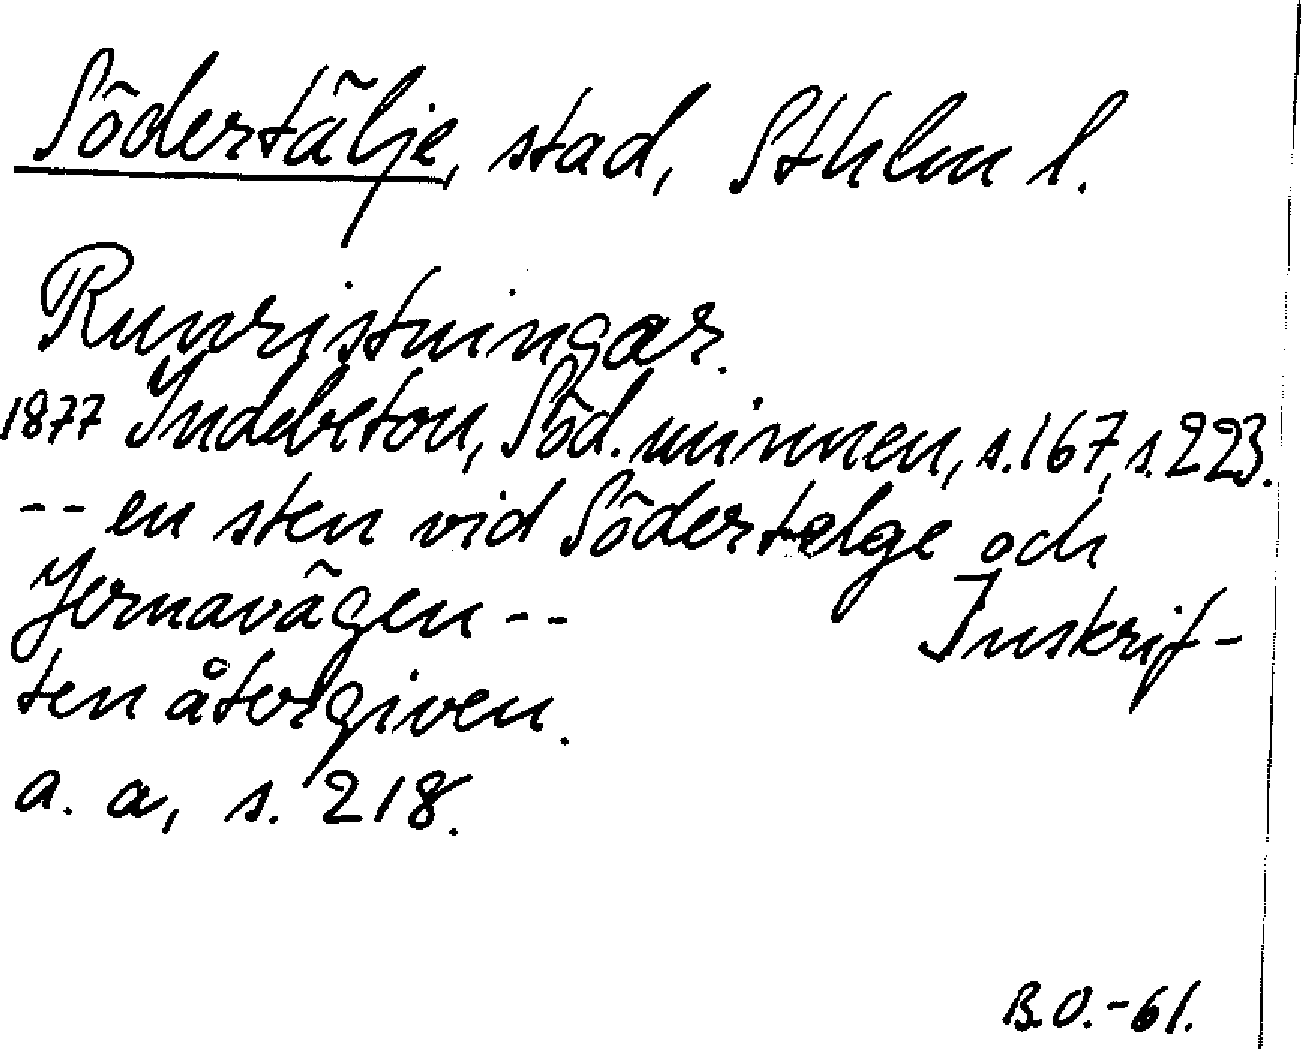 Södertälje, stad, Sthlm l.
Runristningar.
1877 Indebetou, Söd. minnen, s. 167, s. 223.
-- en sten vid Södertelge och
Jernavägen -- Inskrif-
ten återgiven.
a. a, s. 218.
B.O.-61.